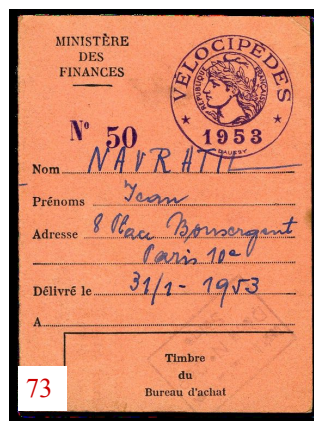 MINISTÈRE
DES
FINANCES
VÉLOCIPÈDES
RÉPUBLIQUE FRANÇAISE
1953
DAUSSY
Nº 50
Nom NAVRATIL
Prénoms Jean
Adresse 8 Place Bonsergent
Paris 10e
Délivré le 31/1-1953
A
Timbre
du
Bureau d'achat
73